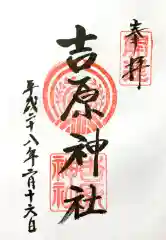 奉拝
吉原神社
平成二十八年二月十六日